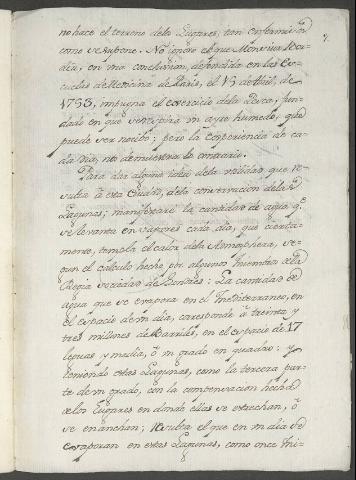 no hace el terreno de los Lugares, tan enfermizo
como se supone. No ignoro el que Monsieur
en una conclusion, defendida en las Es-
cuelas de Medicina de Paris, el 13 de Abril, de
1753, impugna el exercicio dela Pesca, fun-
dado en que se respira un ayre humedo, que
puede ser nocibo; pero la experiencia de ca-
da dia, nos demuestra lo contrario.
Para dar alguna idea dela utilidad que re-
sulta à esta Ciudad, dela conservacion delas
Lagunas; manifestaré la cantidad de agua qe.
se levanta en vapores cada dia, que cierta-
mente, templa el calor dela Atmosphera, se-
gun el calculo hecho por algunos Miembros dela
Regia Sociedad de Londres: La cantidad de
agua que se evapora en el Mediterraneo, en
el espacio de un dia, corresponde à treinta y
tres millones de Barriles, en el espacio de 17
leguas y media, ò un grado en quadro: y
teniendo estas Lagunas, como la tercera par-
te de un grado, con la compensacion hecha
delos Lugares en donde ellas se estrechan, ò
se enanchan; Resulta el que en un dia se
evaporan en estas Lagunas, como once Mi-
8